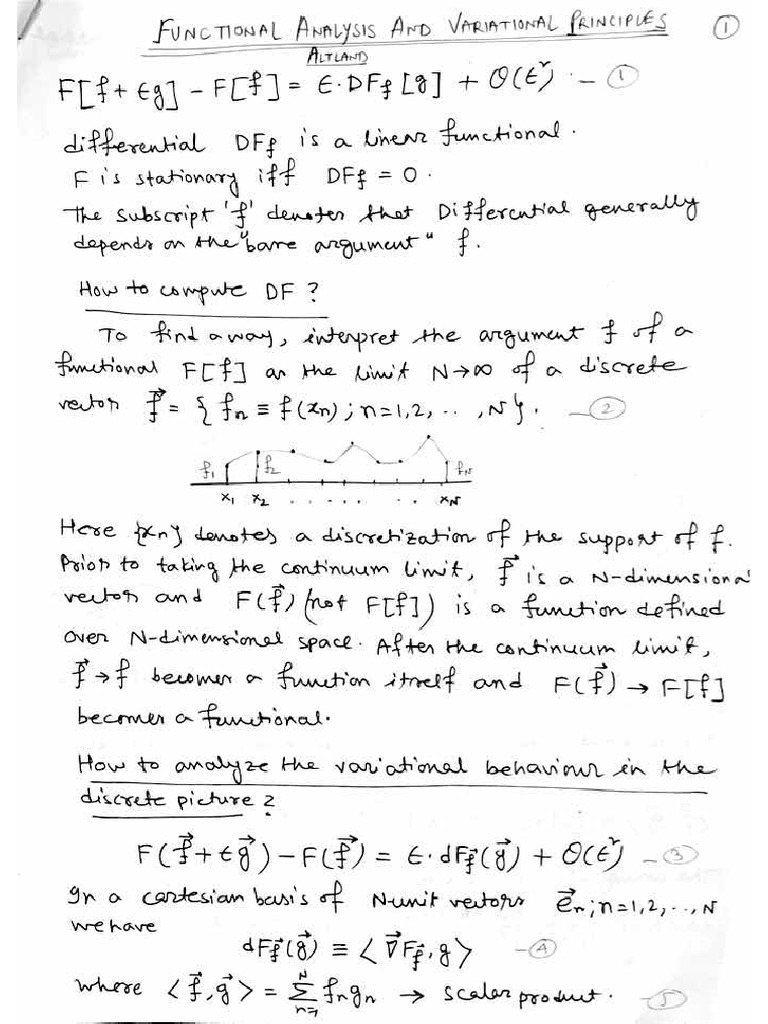 FUNCTIONAL ANALYSIS AND VARIATIONAL PRINCIPLES ①
ALTLAND
F[f + ϵg] - F[f] = ϵ·DF_f [g] + O(ϵ²) · — ①
differential DF_f is a linear functional.
F is stationary iff DF_f = 0.
The subscript 'f' denotes that Differential generally
depends on the "bare argument" f.
How to compute DF ?
To find a way, interpret the argument f of a
functional F[f] as the limit N→∞ of a discrete
vector f⃗ = { f_n ≡ f(x_n) ; n=1,2, .. , N }. — ②
f_1 f_2 f_N
x_1 x_2 . . . . . . . x_N
Here {x_n} denotes a discretization of the support of f.
Prior to taking the continuum limit, f⃗ is a N-dimensional
vector and F(f⃗) (not F[f]) is a function defined
over N-dimensional space. After the continuum limit,
f⃗ → f becomes a function itself and F(f⃗) → F[f]
becomes a functional.
How to analyze the variational behaviour in the
discrete picture ?
F(f⃗ + ϵg⃗) - F(f⃗) = ϵ·dF_f⃗(g⃗) + O(ϵ²) — ③
In a cartesian basis of N-unit vectors e⃗_n ; n=1,2, .., N
we have
dF_f⃗(g⃗) ≡ ⟨ ∇⃗F_f⃗, g ⟩ — ④
where ⟨ f⃗, g⃗ ⟩ = Σ_{n=1}^{N} f_n g_n → scalar product. — ⑤